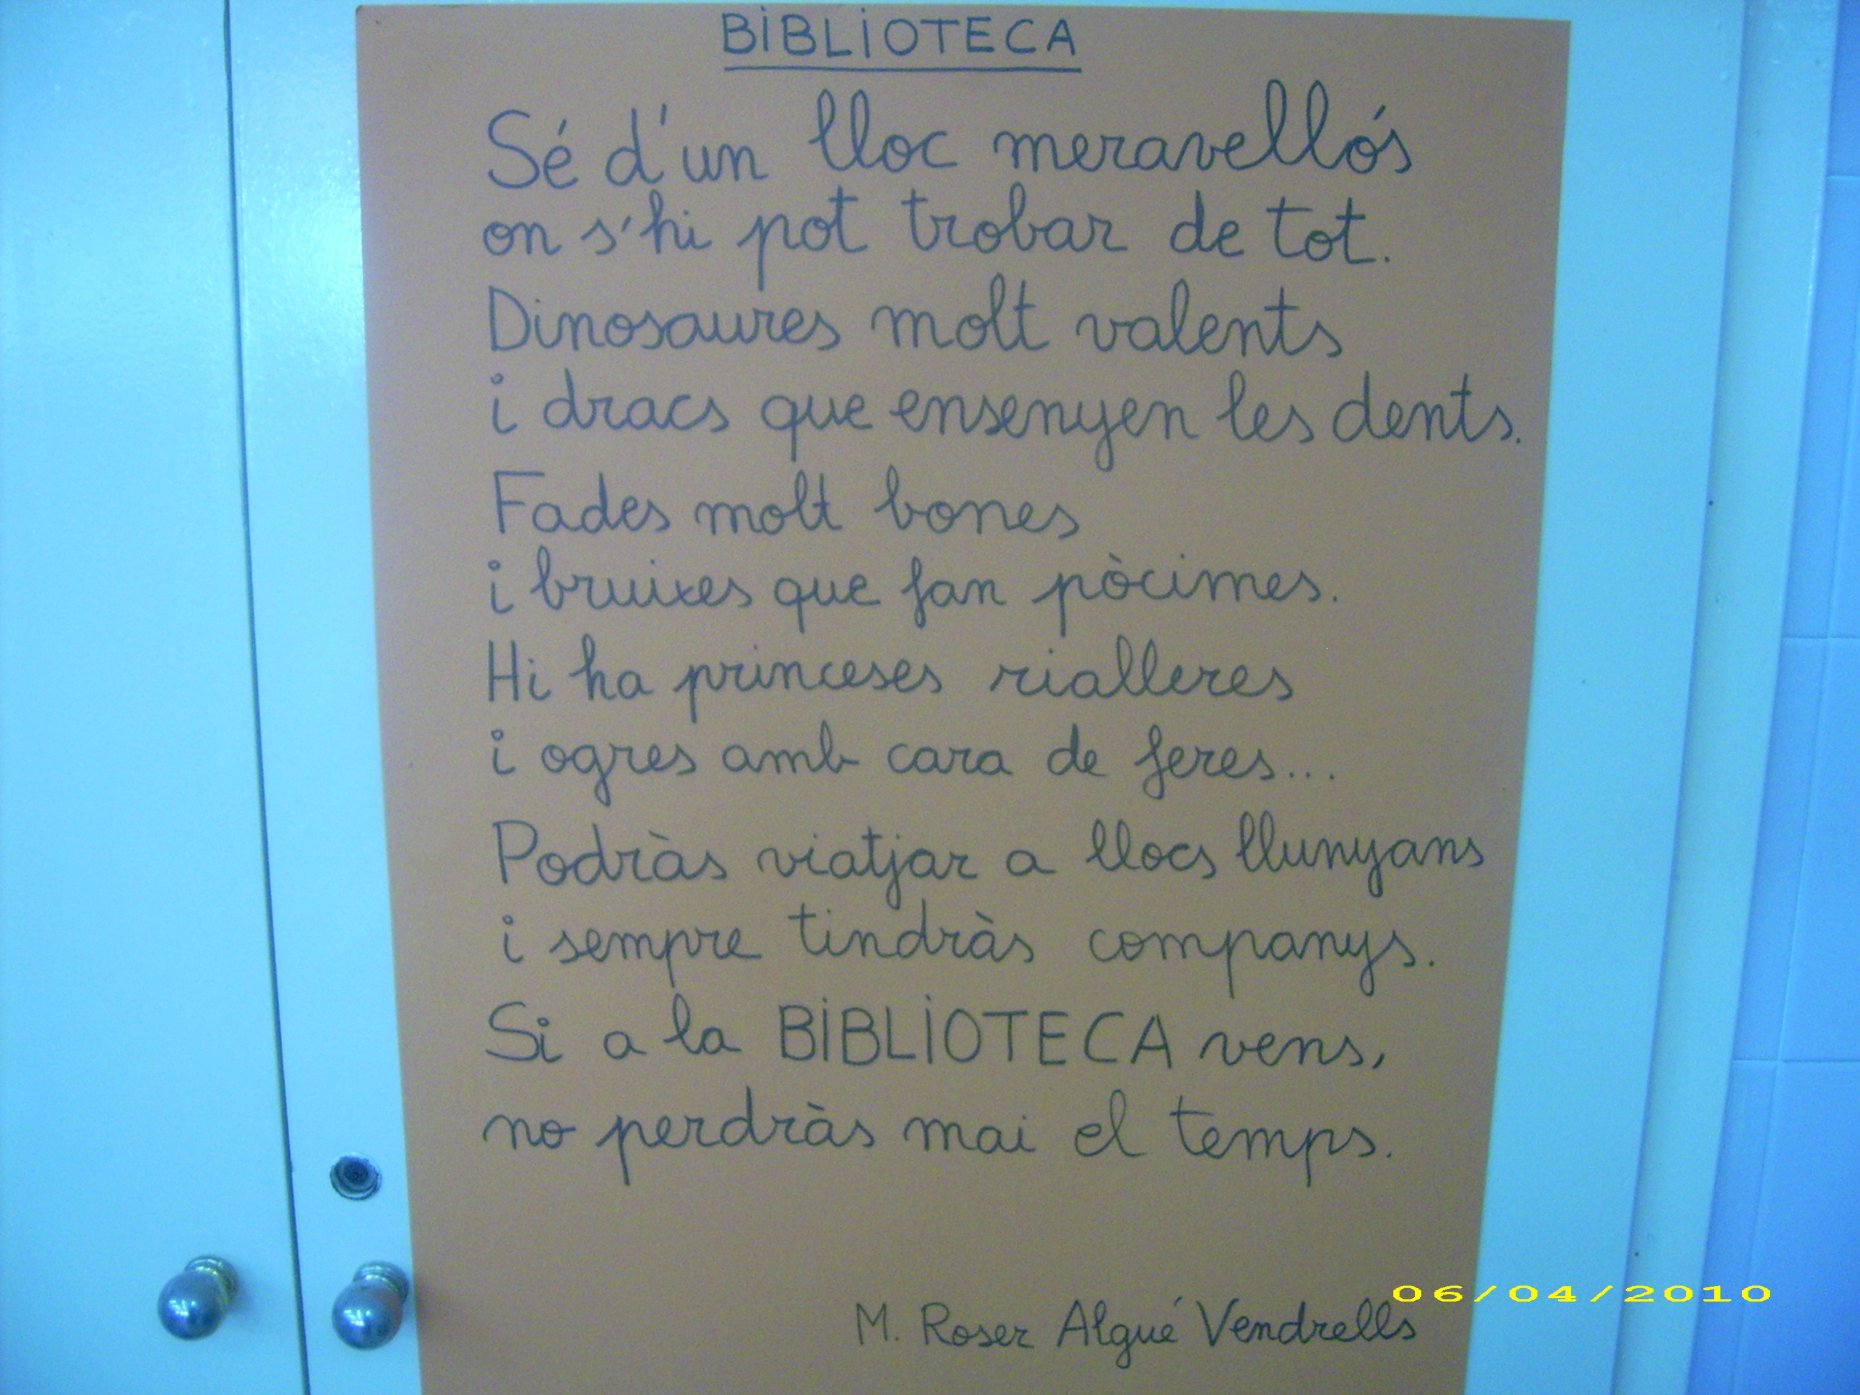 BiBLiOTECA
Sé d'un lloc meravellós
on s'hi pot trobar de tot.
Dinosaures molt valents
i dracs que ensenyen les dents.
Fades molt bones
i bruixes que fan pòcimes.
Hi ha princeses rialleres
i ogres amb cara de feres...
Podràs viatjar a llocs llunyans
i sempre tindràs companys.
Si a la BiBLiOTECA vens,
no perdràs mai el temps.
M. Roser Algué Vendrells
06/04/2010